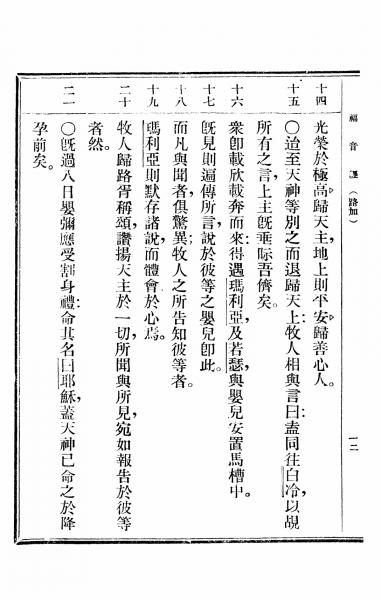 福音 （路加）
一二
十四
光榮於極高歸天主，地上則平安歸善心人。
十五
〇迨至天神等別之而退歸天上；牧人相與言曰：盍同往白冷，以覘
所有之言，上主旣垂眎吾儕矣。
十六
衆卽載欣載奔而來；得遇瑪利亞，及若瑟，與嬰兒安置馬槽中。
十七
旣見則遍傳所言，說於彼等之嬰兒卽此。
十八
而凡與聞者，俱驚異；牧人之所告知彼等者。
十九
瑪利亞則默存諸說，而體會於心焉。
二十
牧人歸路胥稱頌，讚揚天主於一切，所聞與所見，宛如報告於彼等
者然。
二一
〇旣過八日嬰彌應受割身禮；命其名曰耶穌，蓋天神已命之於降
孕前矣。